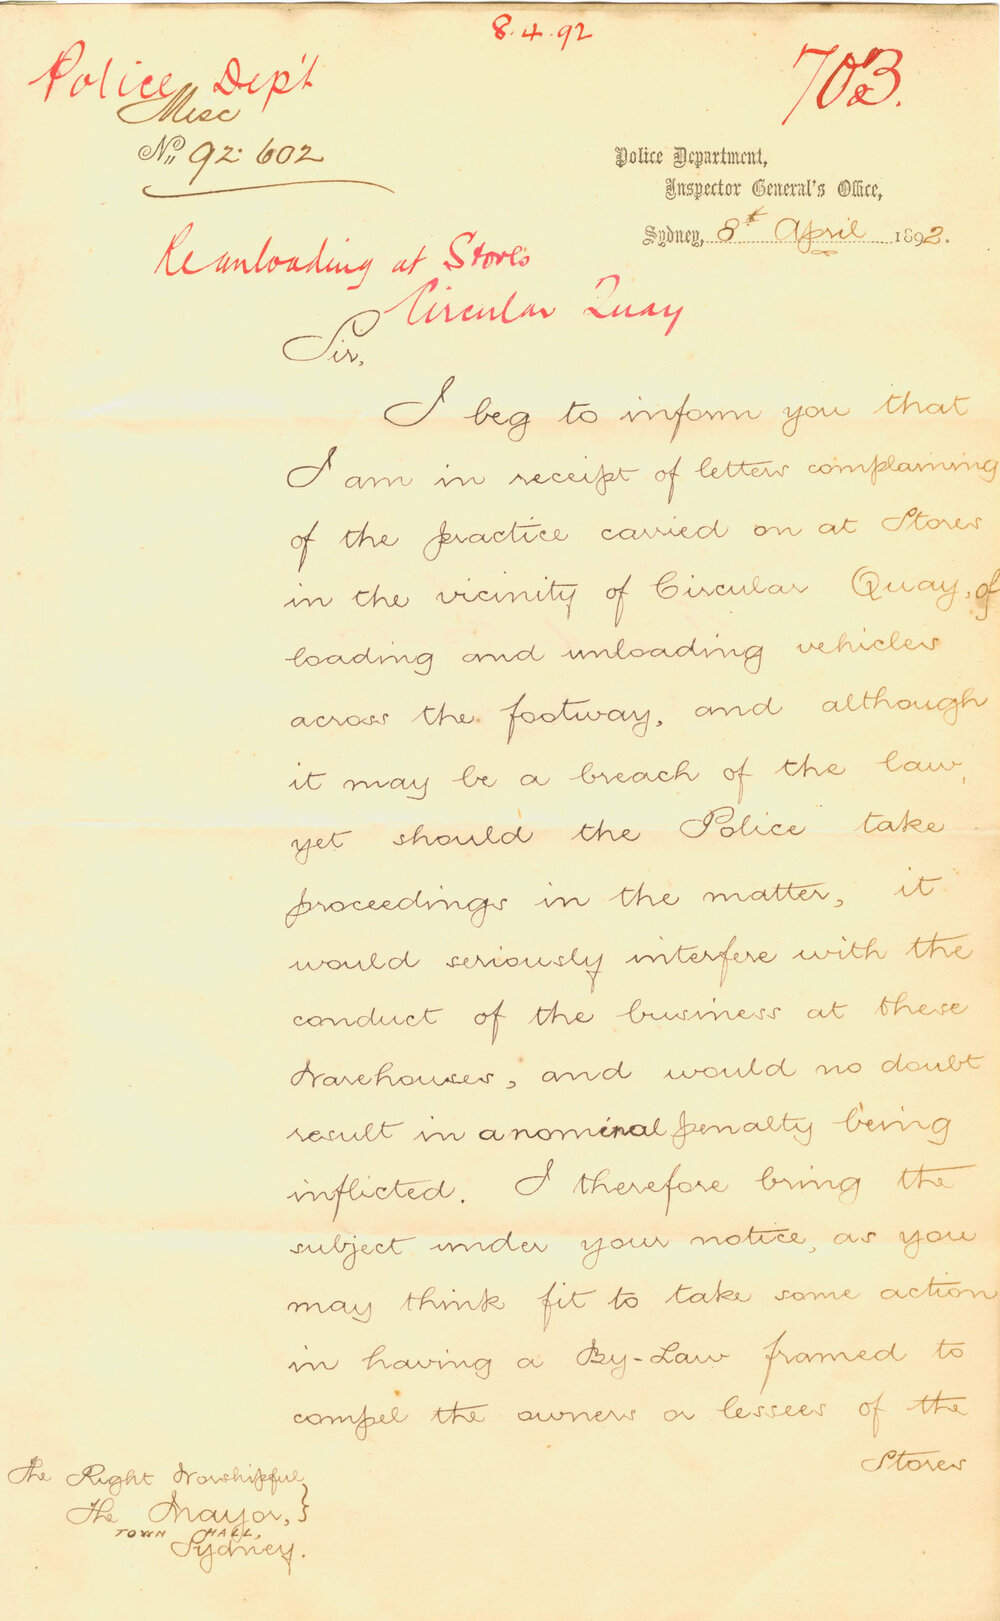 8.4.92
Police Dep't
703.
Misc
No. 92. 602
Police Department,
Inspector General's Office,
Sydney, 8th April 1892.
Re unloading at Stores
Circular Quay
Sir,
I beg to inform you that
I am in receipt of letters complaining
of the practice carried on at Stores
in the vicinity of Circular Quay, of
loading and unloading vehicles
across the footway, and although
it may be a breach of the law,
yet should the Police take
proceedings in the matter, it
would seriously interfere with the
conduct of the business at these
Warehouses, and would no doubt
result in a nominal penalty being
inflicted. I therefore bring the
subject under your notice, as you
may think fit to take some action
in having a By-Law framed to
compel the owners or lessees of the
Stores
The Right Worshipful
The Mayor,
TOWN HALL,
Sydney.